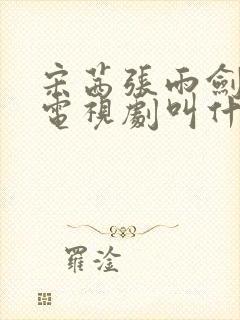 宋茜張雨劍
電視劇叫什
羅淦